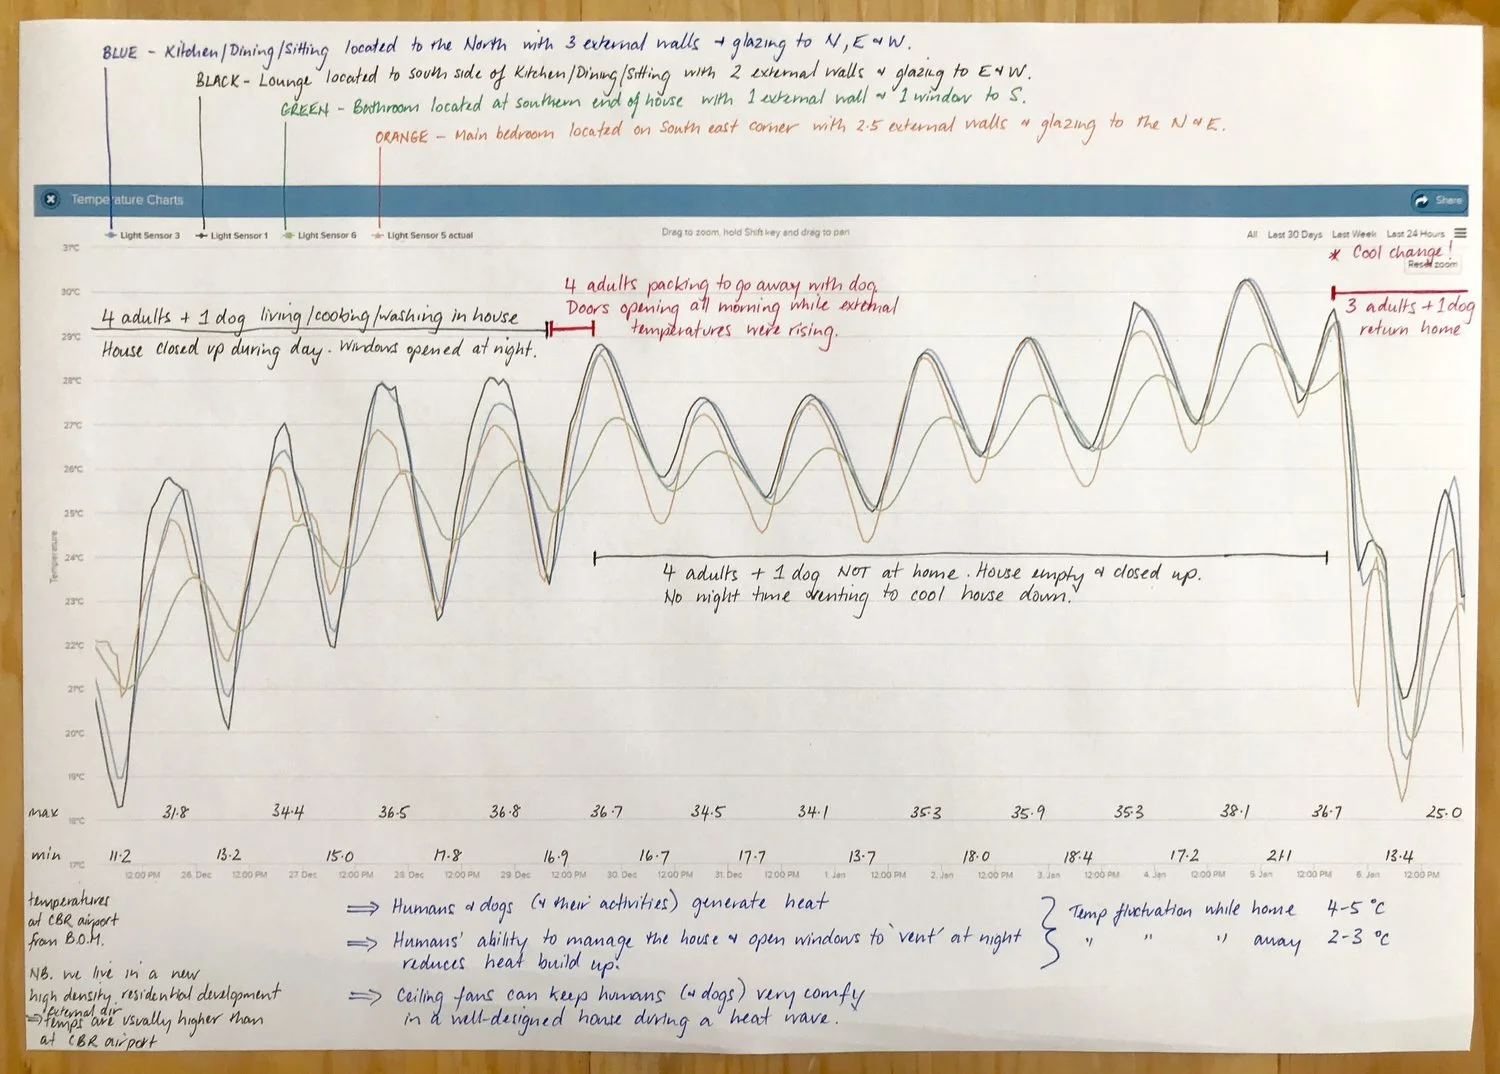 BLUE - Kitchen/Dining/Sitting located to the North with 3 external walls + glazing to N, E & W.
BLACK - Lounge located to south side of Kitchen/Dining/Sitting with 2 external walls & glazing to E & W.
GREEN - Bathroom located at southern end of house with 1 external wall & 1 window to S.
ORANGE - Main bedroom located on South east corner with 2.5 external walls & glazing to the N & E.
Temperature Charts
Share
Light Sensor 3 Light Sensor 1 Light Sensor 6 Light Sensor 5 actual
Drag to zoom, hold Shift key and drag to pan
All Last 30 Days Last Week Last 24 Hours
* Cool change!
Reset zoom
31°C
30°C
29°C
28°C
27°C
26°C
25°C
24°C
23°C
22°C
21°C
20°C
19°C
18°C
17°C
Temperature
4 adults + 1 dog living/cooking/washing in house
House closed up during day. Windows opened at night.
4 adults packing to go away with dog.
Doors opening all morning while external
temperatures were rising.
3 adults + 1 dog
return home
4 adults + 1 dog NOT at home. House empty & closed up.
No night time venting to cool house down.
max 31.8 34.4 36.5 36.8 36.7 34.5 34.1 35.3 35.9 35.3 38.1 36.7 25.0
min 11.2 13.2 15.0 17.8 16.9 16.7 17.7 13.7 18.0 18.4 17.2 21.1 13.4
12:00 PM 26. Dec 12:00 PM 27. Dec 12:00 PM 28. Dec 12:00 PM 29. Dec 12:00 PM 30. Dec 12:00 PM 31. Dec 12:00 PM 1. Jan 12:00 PM 2. Jan 12:00 PM 3. Jan 12:00 PM 4. Jan 12:00 PM 5. Jan 12:00 PM 6. Jan 12:00 PM
temperatures
at CBR airport
from B.O.M.
NB. we live in a new
high density residential development
external air
⇒ temps are usually higher than
at CBR airport
⇒ Humans & dogs (& their activities) generate heat
⇒ Humans' ability to manage the house & open windows to 'vent' at night
reduces heat build up.
⇒ Ceiling fans can keep humans (& dogs) very comfy
in a well-designed house during a heat wave.
Temp fluctuation while home 4-5 °C
" " " away 2-3 °C